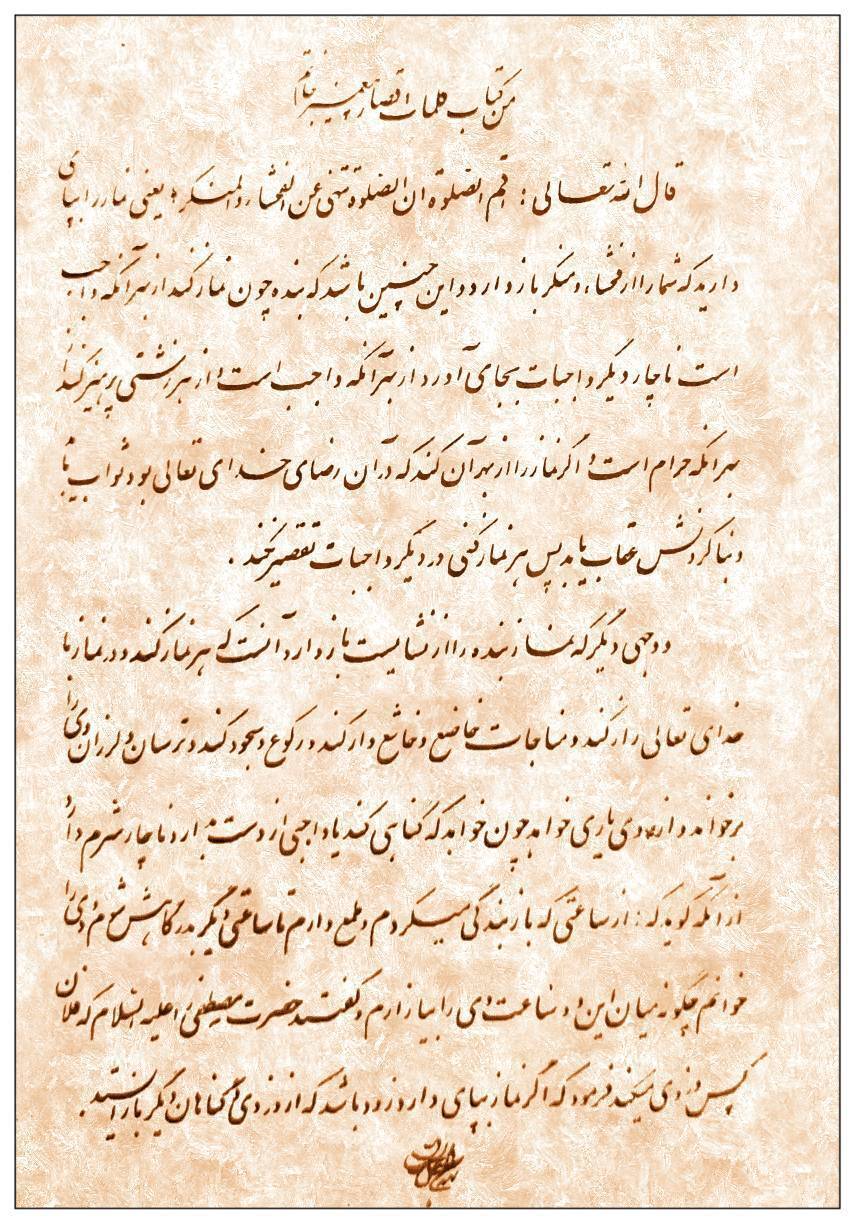 من کتاب کلمات قصار پیغمبر خاتم
قال الله تعالی : اقم الصلوة ان الصلوة تنهی عن الفحشاء والمنکر ؛ یعنی نماز را بپای
دارید که شما را از فحشاء و منکر باز دارد و این چنین باشد که بنده چون نماز کند از بهر آنکه واجب
است ناچار دیگر واجبات بجای آورد از بهر آنکه واجب است و از هر زشتی پرهیز کند از
بهر آنکه حرام است و اگر نماز را از بهر آن کند که در آن رضای خدای تعالی بود ثواب یابد
و بنا کردنش عقاب یابد پس هر نماز کنی در دیگر واجبات تقصیر نکند .
و وجهی دیگر که نماز بنده را از نشایست باز دارد آنست که هر نماز کند و در نماز با
خدای تعالی راز کند و مناجات خاضع و خاشع وار کند و رکوع و سجود کند و ترسان و لرزان وی را
برخواند و از وی یاری خواهد چون خواهد که گناهی کند یا واجبی از دست بدارد ناچار شرم دارد
از آنکه گوید که : از ساعتی که باز بندگی میکردم و طمع دارم تا ساعتی دیگر بدرگاهش شوم و وی را
خوانم چگونه میان این دو ساعت وی را بیازارم و گفتند حضرت مصطفی را علیه السلام که فلان
کس دزدی میکند فرمود که اگر نماز بپای دارد زود باشد که از دزدی و گناهان دیگر باز ایستد .